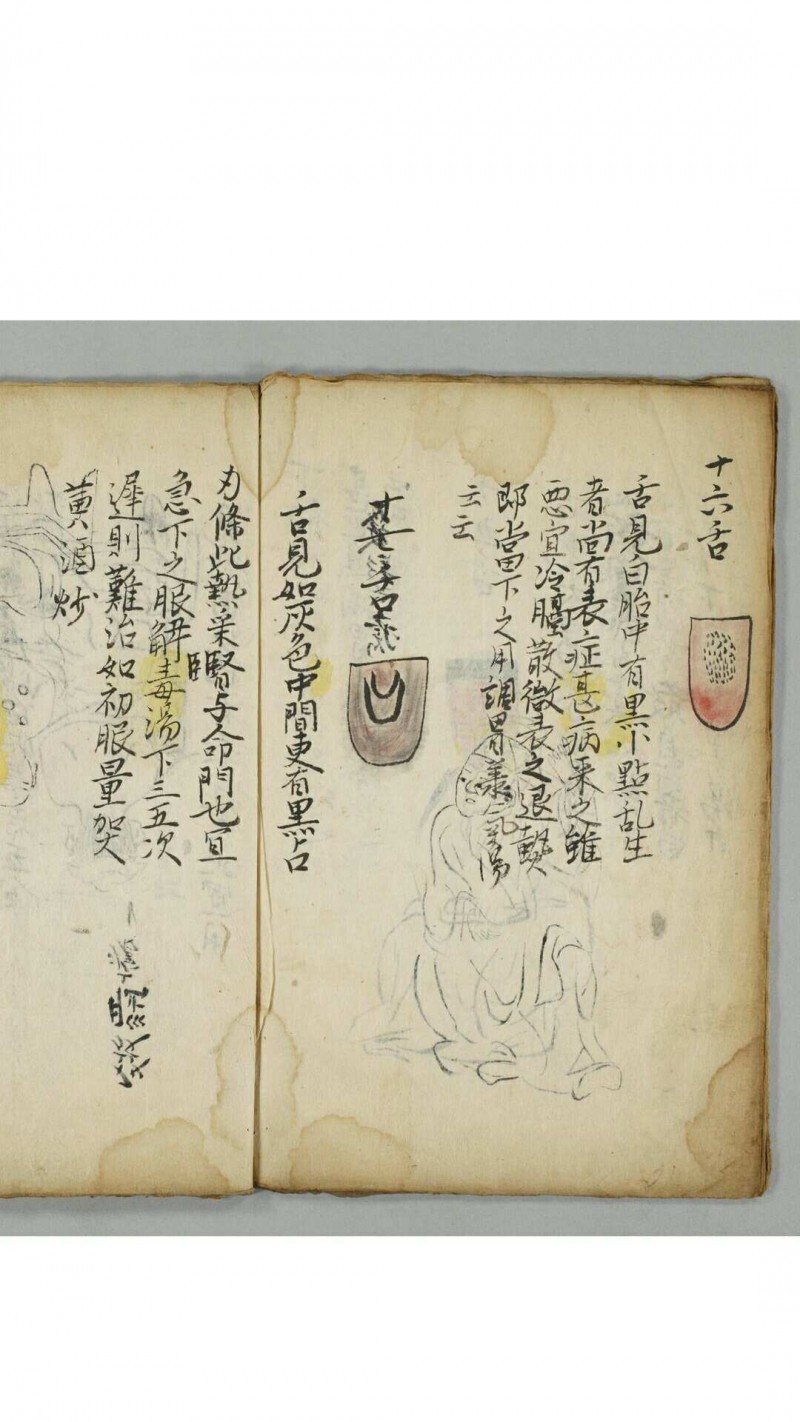 十六舌
舌見白胎中有黒小點乱生
者尚有表症甚病来之雖
悪宜冷膈散微表之退
即當下之用調胃義氣湯
云云
舌見如灰色中間更有黒占
刃條此熱采腎与命門也宜
急下之服解毒湯下三五次
遅則難治如初服量加大
黄酒炒